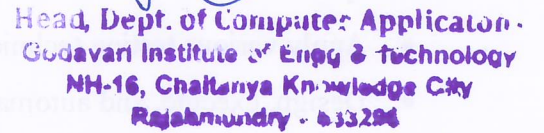 Head, Dept. of Computer Applicaton.
Godavari Institute of Engg & Technology
NH-16, Chaitanya Knowledge City
Rajahmundry - 533296